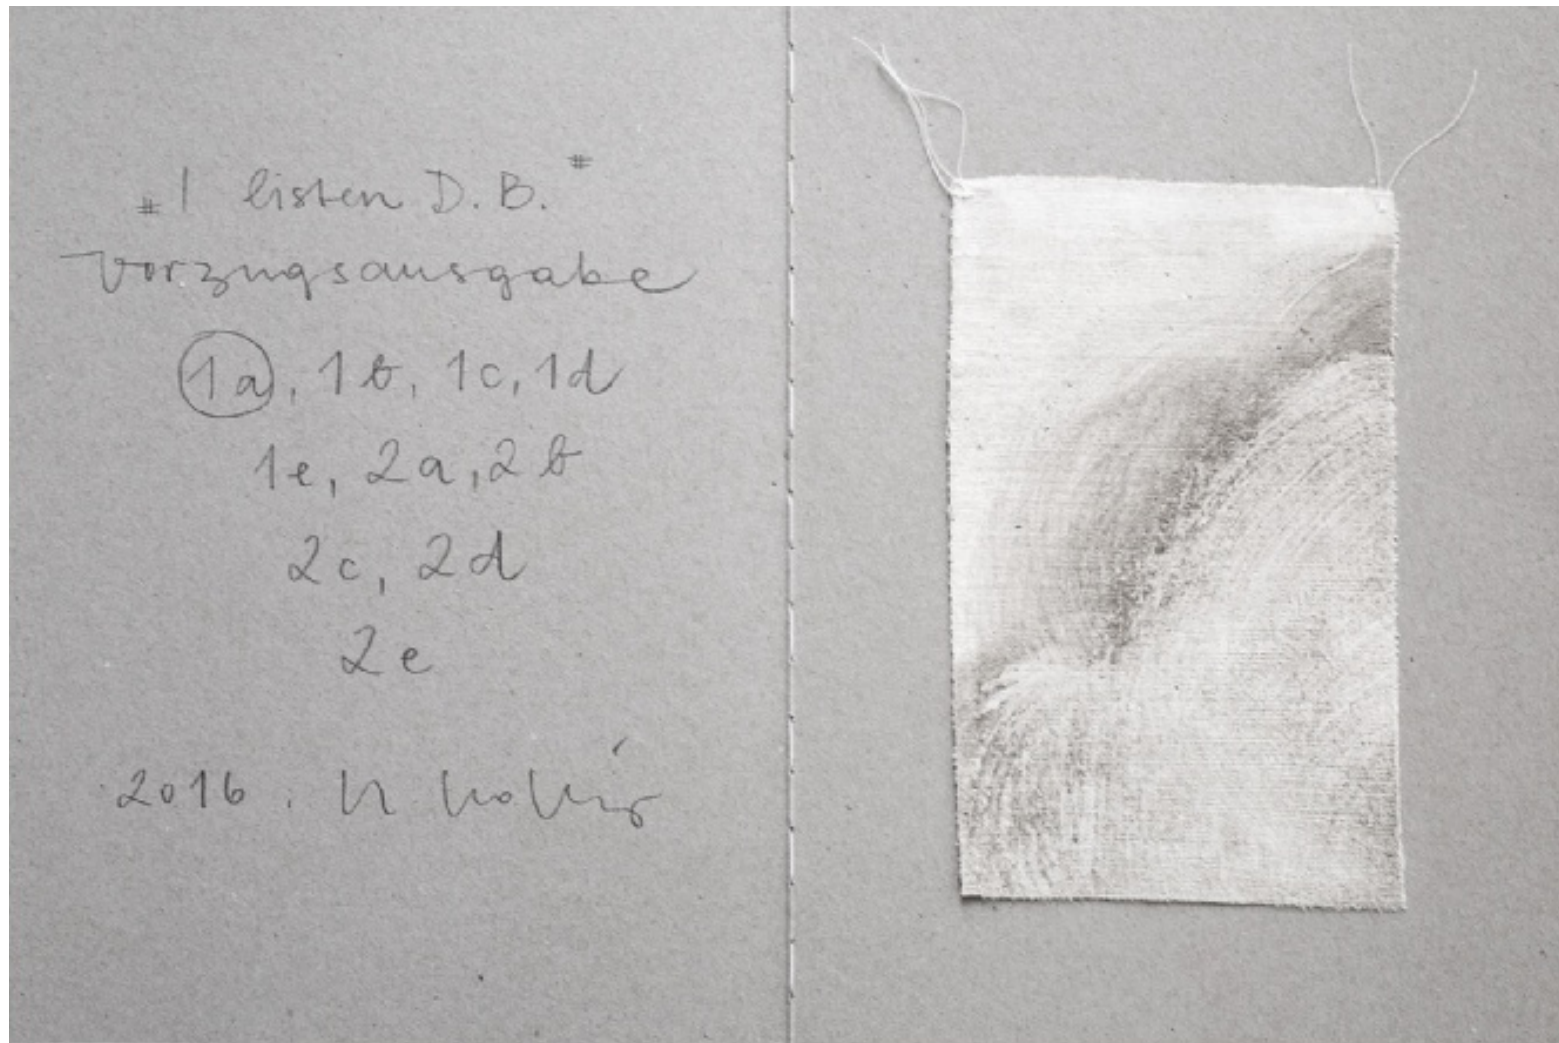 „I listen D.B.“
Vorzugsausgabe
1a, 1b, 1c, 1d
1e, 2a, 2b
2c, 2d
2e
2016.